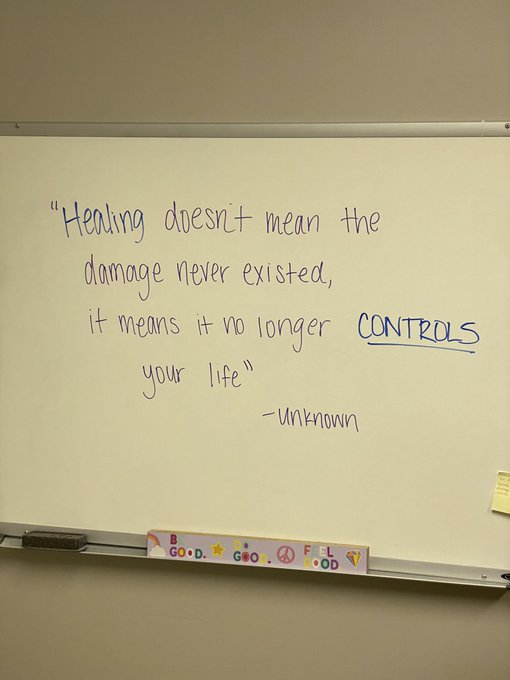 "Healing doesn't mean the
damage never existed,
it means it no longer CONTROLS
your life"
-unknown
B GOOD. DO GOOD. FEEL GOOD